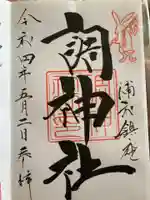 浦和鎮座
調神社
令和四年五月二日参拝